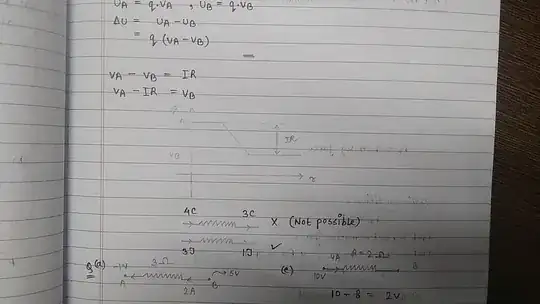 U_A = q.V_A , U_B = q.V_B
ΔU = U_A - U_B
= q (V_A - V_B)
V_A - V_B = IR
V_A - IR = V_B
IR
x
4C 3C
X (Not possible)
✓
3J 1J
Q (a) 3Ω 5V
A 2A B
(c) 4A R = 2Ω B
10V
10 - 8 = 2V